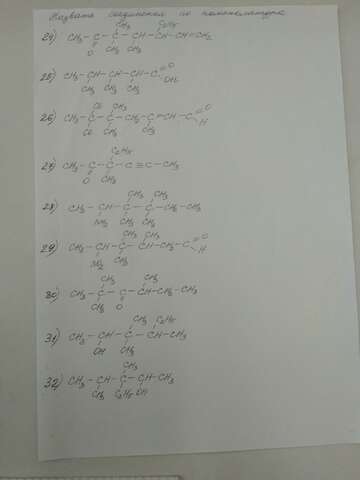 Назвать соединения по номенклатуре
CH3 C2H5
24) CH3 - C - C - CH - CH - CH = CH2
O CH3 CH3
25) CH3 - CH - CH - CH - C O
CH3 CH3 CH3 OH
Cl CH3
26) CH3 - C - C - CH2 - C = CH - C O
Cl CH3 CH3 H
C2H5
27) CH3 - C - C - C ≡ C - CH3
O CH3
CH3 CH3
28) CH3 - CH - C - C - CH2 - CH3
NH2 CH3 CH3
CH3 CH3
29) CH3 - CH - C - CH - CH2 - C O
NH2 CH3 H
CH3 CH3
30) CH3 - C - C - CH - CH2 - CH3
CH3 O
CH3 C2H5
31) CH3 - CH - C - CH - CH3
OH CH3
CH3
32) CH3 - CH - C - CH - CH3
CH3 C2H5 OH